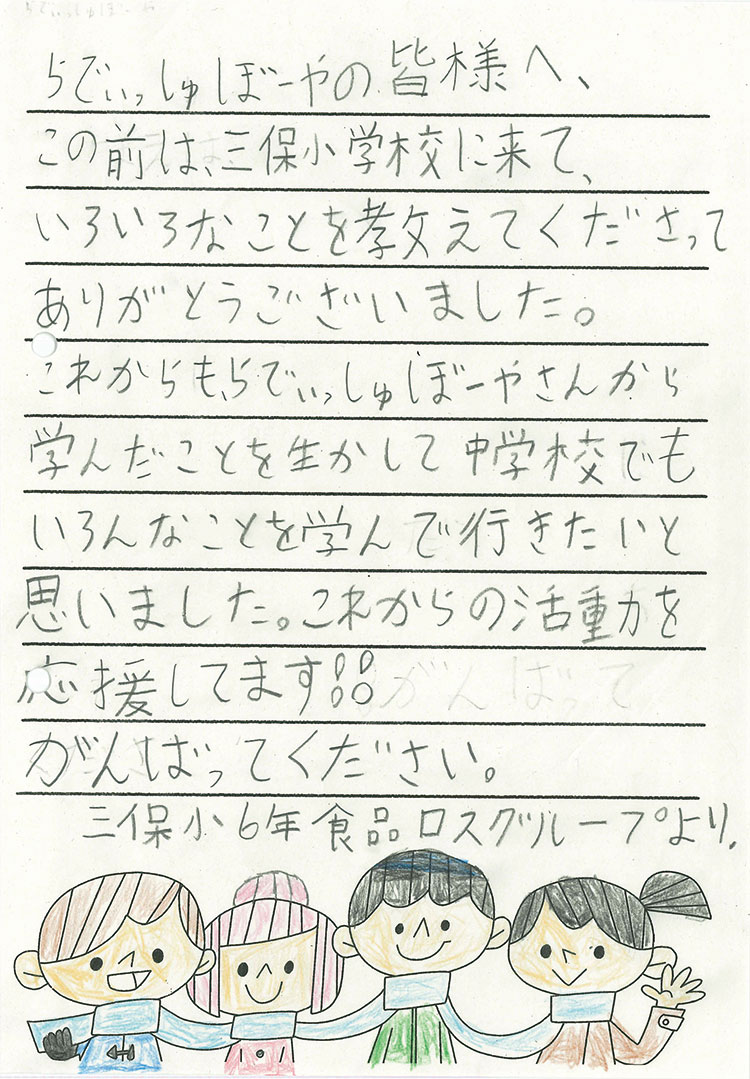 らでぃっしゅぼーやの皆様へ、
この前は、三保小学校に来て、
いろいろなことを教えてくださって
ありがとうございました。
これからも、らでぃっしゅぼーやさんから
学んだことを生かして中学校でも
いろんなことを学んで行きたいと
思いました。これからの活動を
応援してます!!
がんばってください。
三保小6年食品ロスグループより.